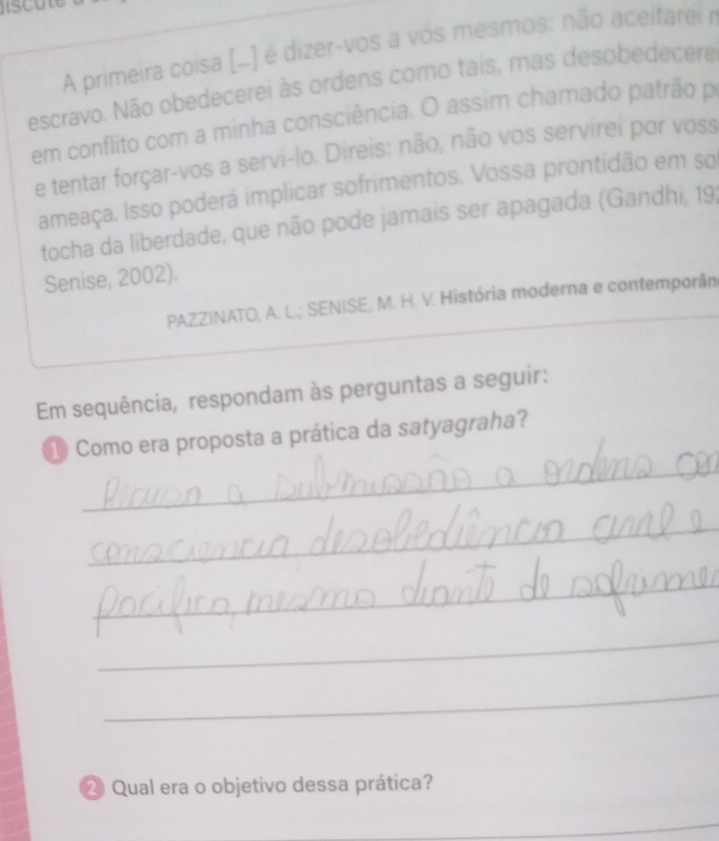 discute
A primeira coisa [...] é dizer-vos a vós mesmos: não aceitarei
escravo. Não obedecerei às ordens como tais, mas desobedecere
em conflito com a minha consciência. O assim chamado patrão p
e tentar forçar-vos a servi-lo. Direis: não, não vos servirei por voss
ameaça. Isso poderá implicar sofrimentos. Vossa prontidão em so
tocha da liberdade, que não pode jamais ser apagada (Gandhi, 19
Senise, 2002).
PAZZINATO, A. L.; SENISE, M. H. V. História moderna e contemporân
Em sequência, respondam às perguntas a seguir:
1 Como era proposta a prática da satyagraha?
Recusa a submissão a ordens con
consciencia, desobediência civil e
pacifica, mesmo diante de sofrime
2 Qual era o objetivo dessa prática?